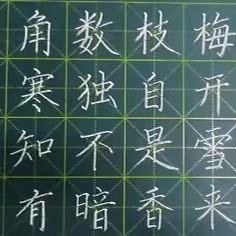 角数枝梅
寒独自开
知不是雪
有暗香来